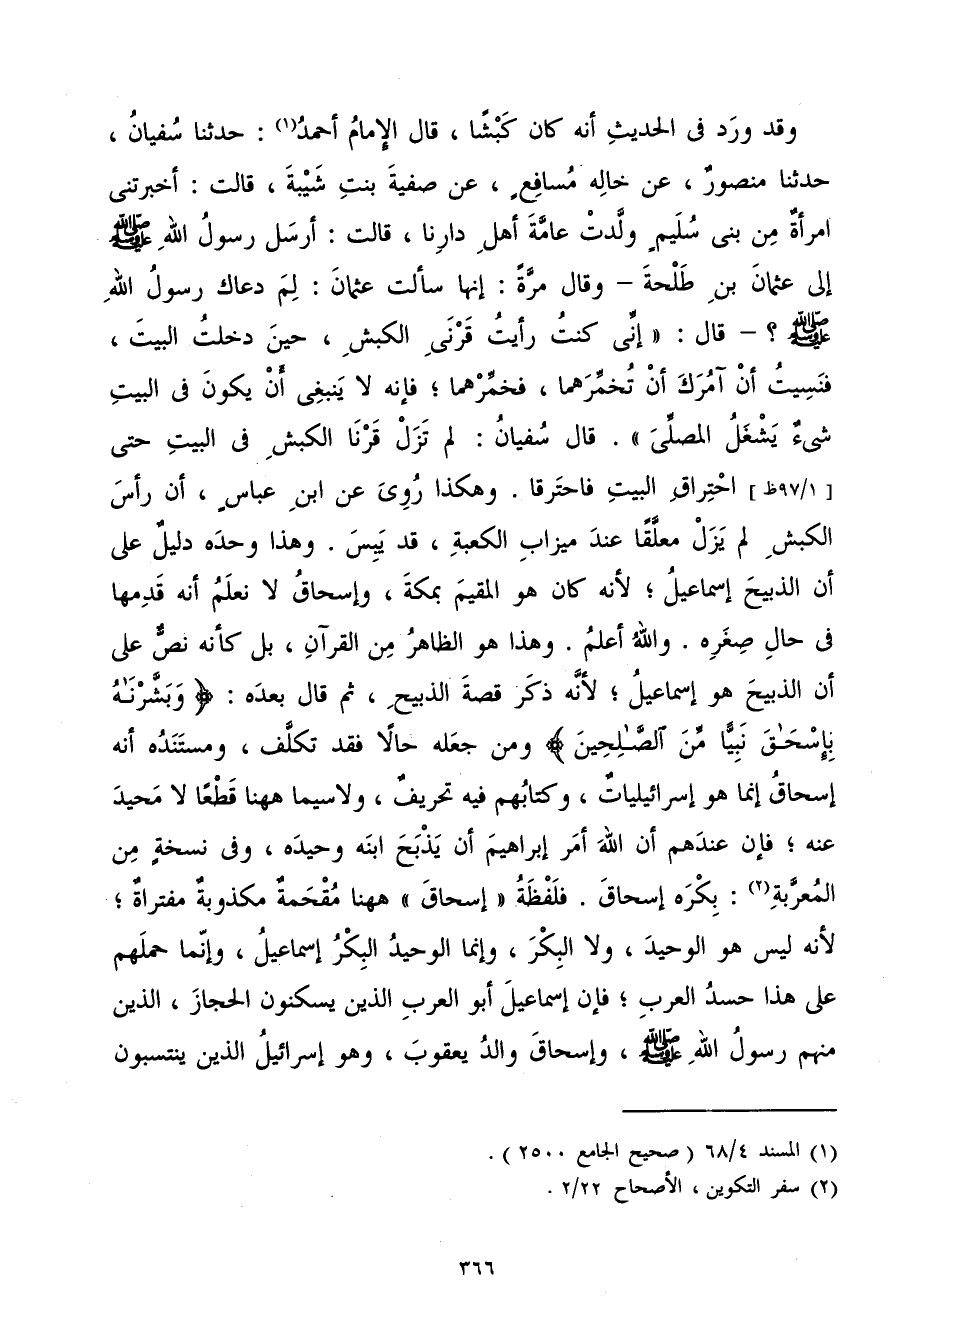 وقد ورَد فى الحديثِ أنه كان كَبْشًا ، قال الإمامُ أحمدُ(١) : حدثنا سُفيانُ ،
حدثنا منصورٌ ، عن خالِه مُسافِعٍ ، عن صفيةَ بنتِ شَيْبةَ ، قالت : أخبرتنى
امرأةٌ مِن بنى سُلَيمٍ ولَّدتْ عامَّةَ أهلِ دارِنا ، قالت : أرسَل رسولُ اللهِ ﷺ
إلى عثمانَ بنِ طَلْحةَ – وقال مرَّةً : إنها سألت عثمانَ : لِمَ دعاك رسولُ اللهِ
ﷺ ؟ – قال : « إنِّى كنتُ رأيتُ قَرْنَىِ الكبشِ ، حينَ دخلتُ البيتَ ،
فنَسِيتُ أنْ آمُرَكَ أنْ تُخمِّرَهما ، فخمِّرْهما ؛ فإنه لا يَنبغِى أَنْ يكونَ فى البيتِ
شىءٌ يَشْغَلُ المصلِّىَ » . قال سُفيانُ : لم تَزَلْ قَرْنَا الكبشِ فى البيتِ حتى
[ ١/٩٧ظ ] احْتِراقِ البيتِ فاحتَرقا . وهكذا رُوِىَ عن ابنِ عباسٍ ، أن رأسَ
الكبشِ لم يَزَلْ معلَّقًا عندَ ميزابِ الكعبةِ ، قد يَبِسَ . وهذا وحدَه دليلٌ على
أن الذبيحَ إسماعيلُ ؛ لأنه كان هو المقيمَ بمكةَ ، وإسحاقُ لا نعلَمُ أنه قَدِمها
فى حالِ صِغَرِه . واللهُ أعلمُ . وهذا هو الظاهرُ مِن القرآنِ ، بل كأنه نصٌّ على
أن الذبيحَ هو إسماعيلُ ؛ لأنَّه ذكَر قصةَ الذبيحِ ، ثم قال بعدَه : ﴿ وَبَشَّرْنَـٰهُ
بِإِسْحَـٰقَ نَبِيًّا مِّنَ ٱلصَّـٰلِحِينَ ﴾ ومن جعَله حالًا فقد تكلَّف ، ومستَنَدُه أنه
إسحاقُ إنما هو إسرائيلياتٌ ، وكتابُهم فيه تحريفٌ ، ولاسيما ههنا قَطْعًا لا مَحيدَ
عنه ؛ فإن عندَهم أن اللهَ أمَر إبراهيمَ أن يَذْبَحَ ابنَه وحيدَه ، وفى نسخةٍ مِن
المُعرَّبةِ(٢) : بِكْرَه إسحاقَ . فلَفْظَةُ « إسحاقَ » ههنا مُقْحَمةٌ مكذوبةٌ مفتراةٌ ؛
لأنه ليس هو الوحيدَ ، ولا البِكْرَ ، وإنما الوحيدُ البِكْرُ إسماعيلُ ، وإنّما حملَهم
على هذا حسدُ العربِ ؛ فإن إسماعيلَ أبو العربِ الذين يسكنون الحجازَ ، الذين
منهم رسولُ اللهِ ﷺ ، وإسحاقَ والدُ يعقوبَ ، وهو إسرائيلُ الذين ينتسبون
(١) المسند ٦٨/٤ ( صحيح الجامع ٢٥٠٠ ) .
(٢) سفر التكوين ، الأصحاح ٢/٢٢ .
٣٦٦